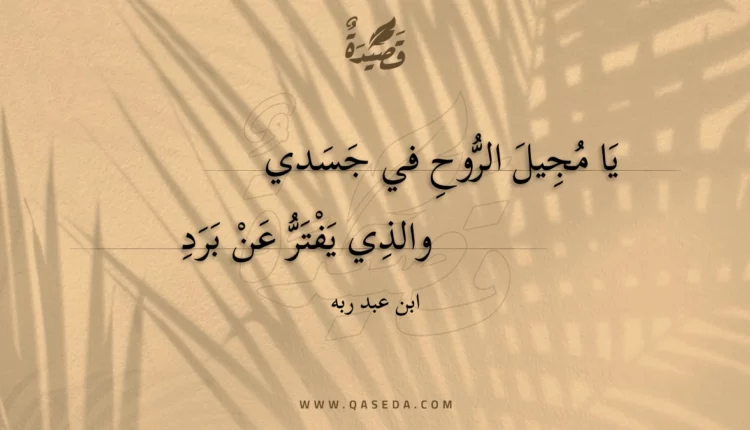 قَصِيدَةٌ
يَا مُجِيلَ الرُّوحِ في جَسَدي
والذِي يَفْتَرُّ عَنْ بَرَدِ
ابن عبد ربه
WWW.QASEDA.COM